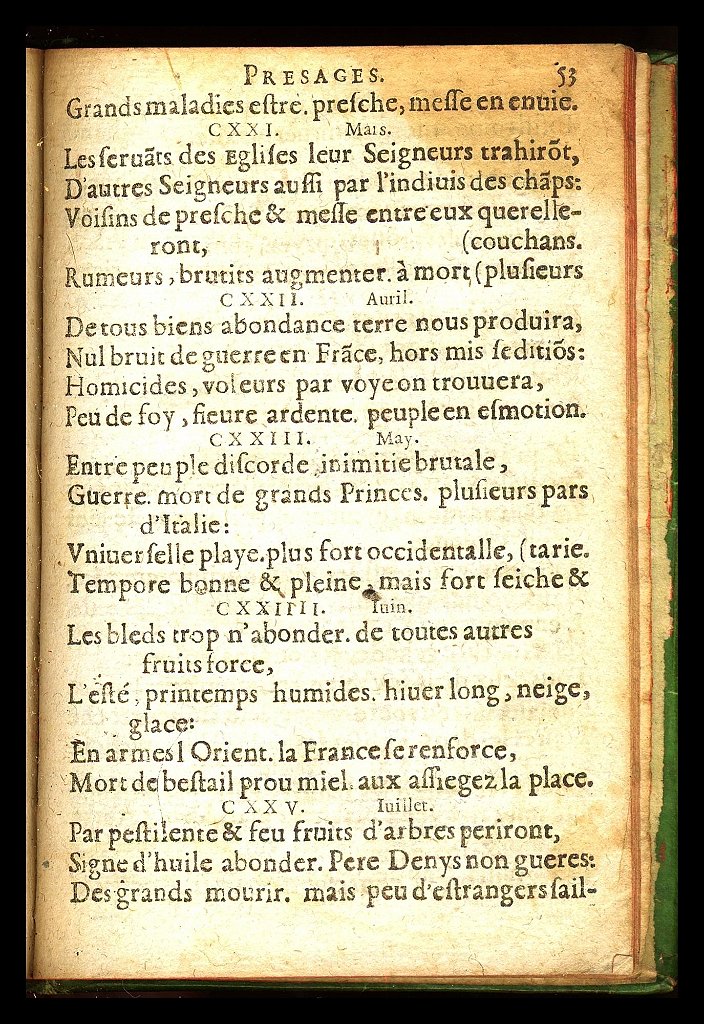 PRESAGES. 53
Grands maladies eſtre. preſche, meſſe en enuie.
CXXI. Mars.
Les ſeruãts des Egliſes leur Seigneurs trahirõt,
D'autres Seigneurs auſſi par l'indiuis des chãps:
Voiſins de preſche & meſſe entre eux querelle-
ront, (couchans.
Rumeurs, brutits augmenter. à mort (pluſieurs
CXXII. Auril.
De tous biens abondance terre nous produira,
Nul bruit de guerre en Frãce, hors mis ſeditiõs:
Homicides, voleurs par voye on trouuera,
Peu de foy, fieure ardente. peuple en eſmotion.
CXXIII. May.
Entre peuple diſcorde, inimitie brutale,
Guerre. mort de grands Princes. pluſieurs pars
d'Italie:
Vniuerſelle playe. plus fort occidentalle, (tarie.
Tempore bonne & pleine, mais fort ſeiche &
CXXIIII. Iuin.
Les bleds trop n'abonder. de toutes autres
fruits force,
L'eſté, printemps humides. hiuer long, neige,
glace:
En armes l Orient. la France ſe renforce,
Mort de beſtail prou miel. aux aſſiegez la place.
CXXV. Iuillet.
Par peſtilente & feu fruits d'arbres periront,
Signe d'huile abonder. Pere Denys non gueres:
Des grands mourir. mais peu d'eſtrangers ſail-